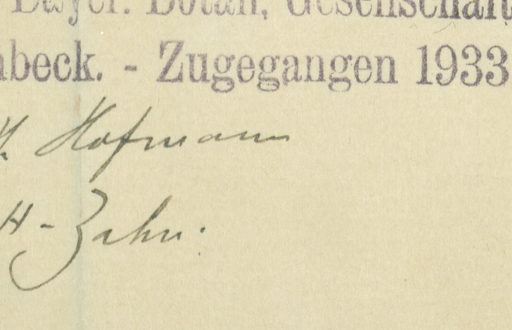 Bayer. Botan. Gesellschaft
nbeck. - Zugegangen 1933
H. Hofmann
H - Zahn.